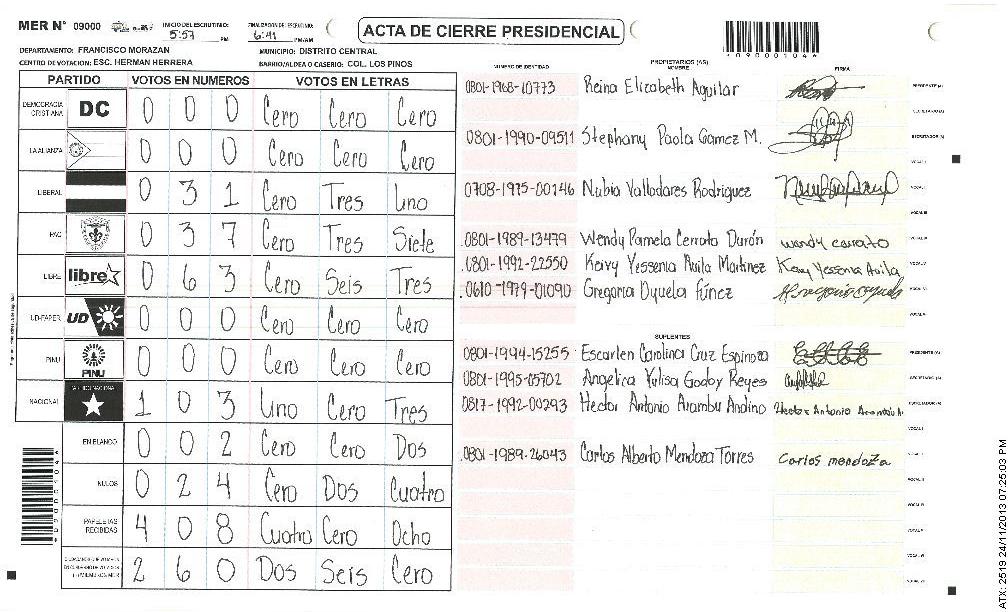 MER N° 09000 INICIO DEL ESCRUTINIO: 5:57 PM FINALIZACION DEL ESCRUTINIO: 6:41 PM/AM
ACTA DE CIERRE PRESIDENCIAL
DEPARTAMENTO: FRANCISCO MORAZAN MUNICIPIO: DISTRITO CENTRAL
CENTRO DE VOTACION: ESC. HERMAN HERRERA BARRIO/ALDEA O CASERIO: COL. LOS PINOS
PARTIDO VOTOS EN NUMEROS VOTOS EN LETRAS
DEMOCRACIA CRISTIANA DC 0 0 0 Cero Cero Cero
LA ALIANZA 0 0 0 Cero Cero Cero
LIBERAL 0 3 1 Cero Tres Uno
PAC 0 3 7 Cero Tres Siete
LIBRE libre 0 6 3 Cero Seis Tres
UD-FAPER UD 0 0 0 Cero Cero Cero
PINU PINU 0 0 0 Cero Cero Cero
NACIONAL 1 0 3 Uno Cero Tres
EN BLANCO 0 0 2 Cero Cero Dos
NULOS 0 2 4 Cero Dos Cuatro
PAPELETAS RECIBIDAS 4 0 8 Cuatro Cero Ocho
2 6 0 Dos Seis Cero
PROPIETARIOS (AS)
NUMERO DE IDENTIDAD NOMBRE FIRMA
0801-1968-10773 Reina Elizabeth Aguilar PRESIDENTE (A)
SECRETARIO (A)
0801-1990-09511 Stephany Paola Gamez M. ESCRUTADOR (A)
VOCAL I
0708-1975-00146 Nubia Valladares Rodriguez
0801-1989-13479 Wendy Pamela Cerrato Durón Wendy cerrato
0801-1992-22550 Keivy Yessenia Avila Martinez Keivy Yessenia Avila
0610-1979-01090 Gregoria Oyuela Fúnez
SUPLENTES
0801-1994-15255 Escarlen Carolina Cruz Espinoza PRESIDENTE (A)
0801-1995-05702 Angelica Yulisa Godoy Reyes SECRETARIO (A)
0817-1992-00293 Hector Antonio Arambu Andino Hector Antonio Arambu A. ESCRUTADOR (A)
0801-1989-26043 Carlos Alberto Mendoza Torres Carlos mendoza
ATX: 2519 24/11/2013 07:25:03 PM